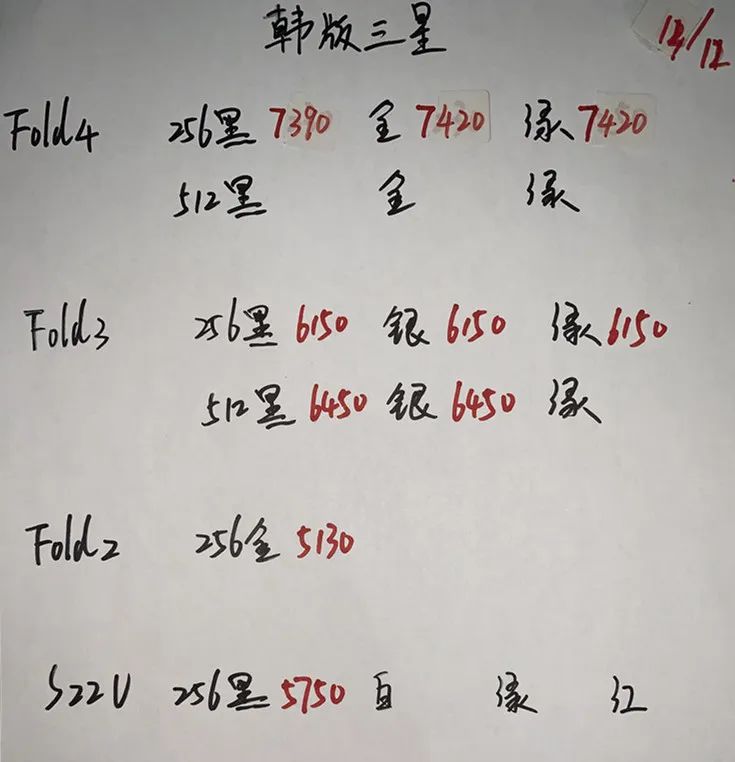 韩版三星
12/12
Fold4 256黑 7390 金 7420 绿 7420
512黑 金 绿
Fold3 256黑 6150 银 6150 绿 6150
512黑 6450 银 6450 绿
Fold2 256金 5130
S22U 256黑 5750 白 绿 红